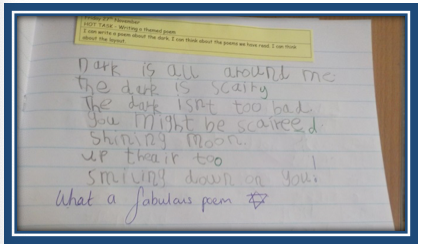 Friday 27th November
HOT TASK - Writing a themed poem
I can write a poem about the dark. I can think about the poems we have read. I can think
about the layout.
Dark is all around me.
The dark is scarry
The dark isnt too bad.
you might be scaireed.
Shining moon.
up theair too
smiving down on you.
What a fabulous poem